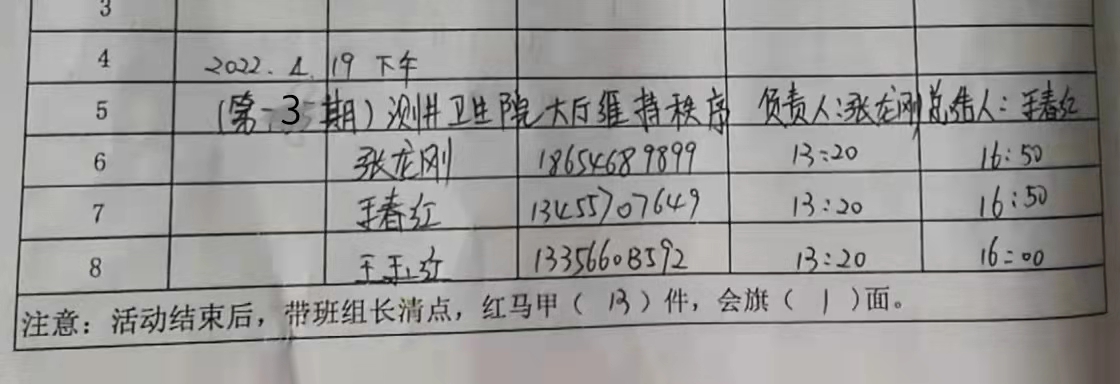 3
4 2022.4.19 下午
5 (第 3 期)测井卫生院大厅维持秩序 负责人:张龙刚 总结人:王春红
6 张龙刚 18654689899 13:20 16:50
7 王春红 13455707649 13:20 16:50
8 王玉红 13356608592 13:20 16:00
注意：活动结束后，带班组长清点，红马甲（ 13 ）件，会旗（ 1 ）面。